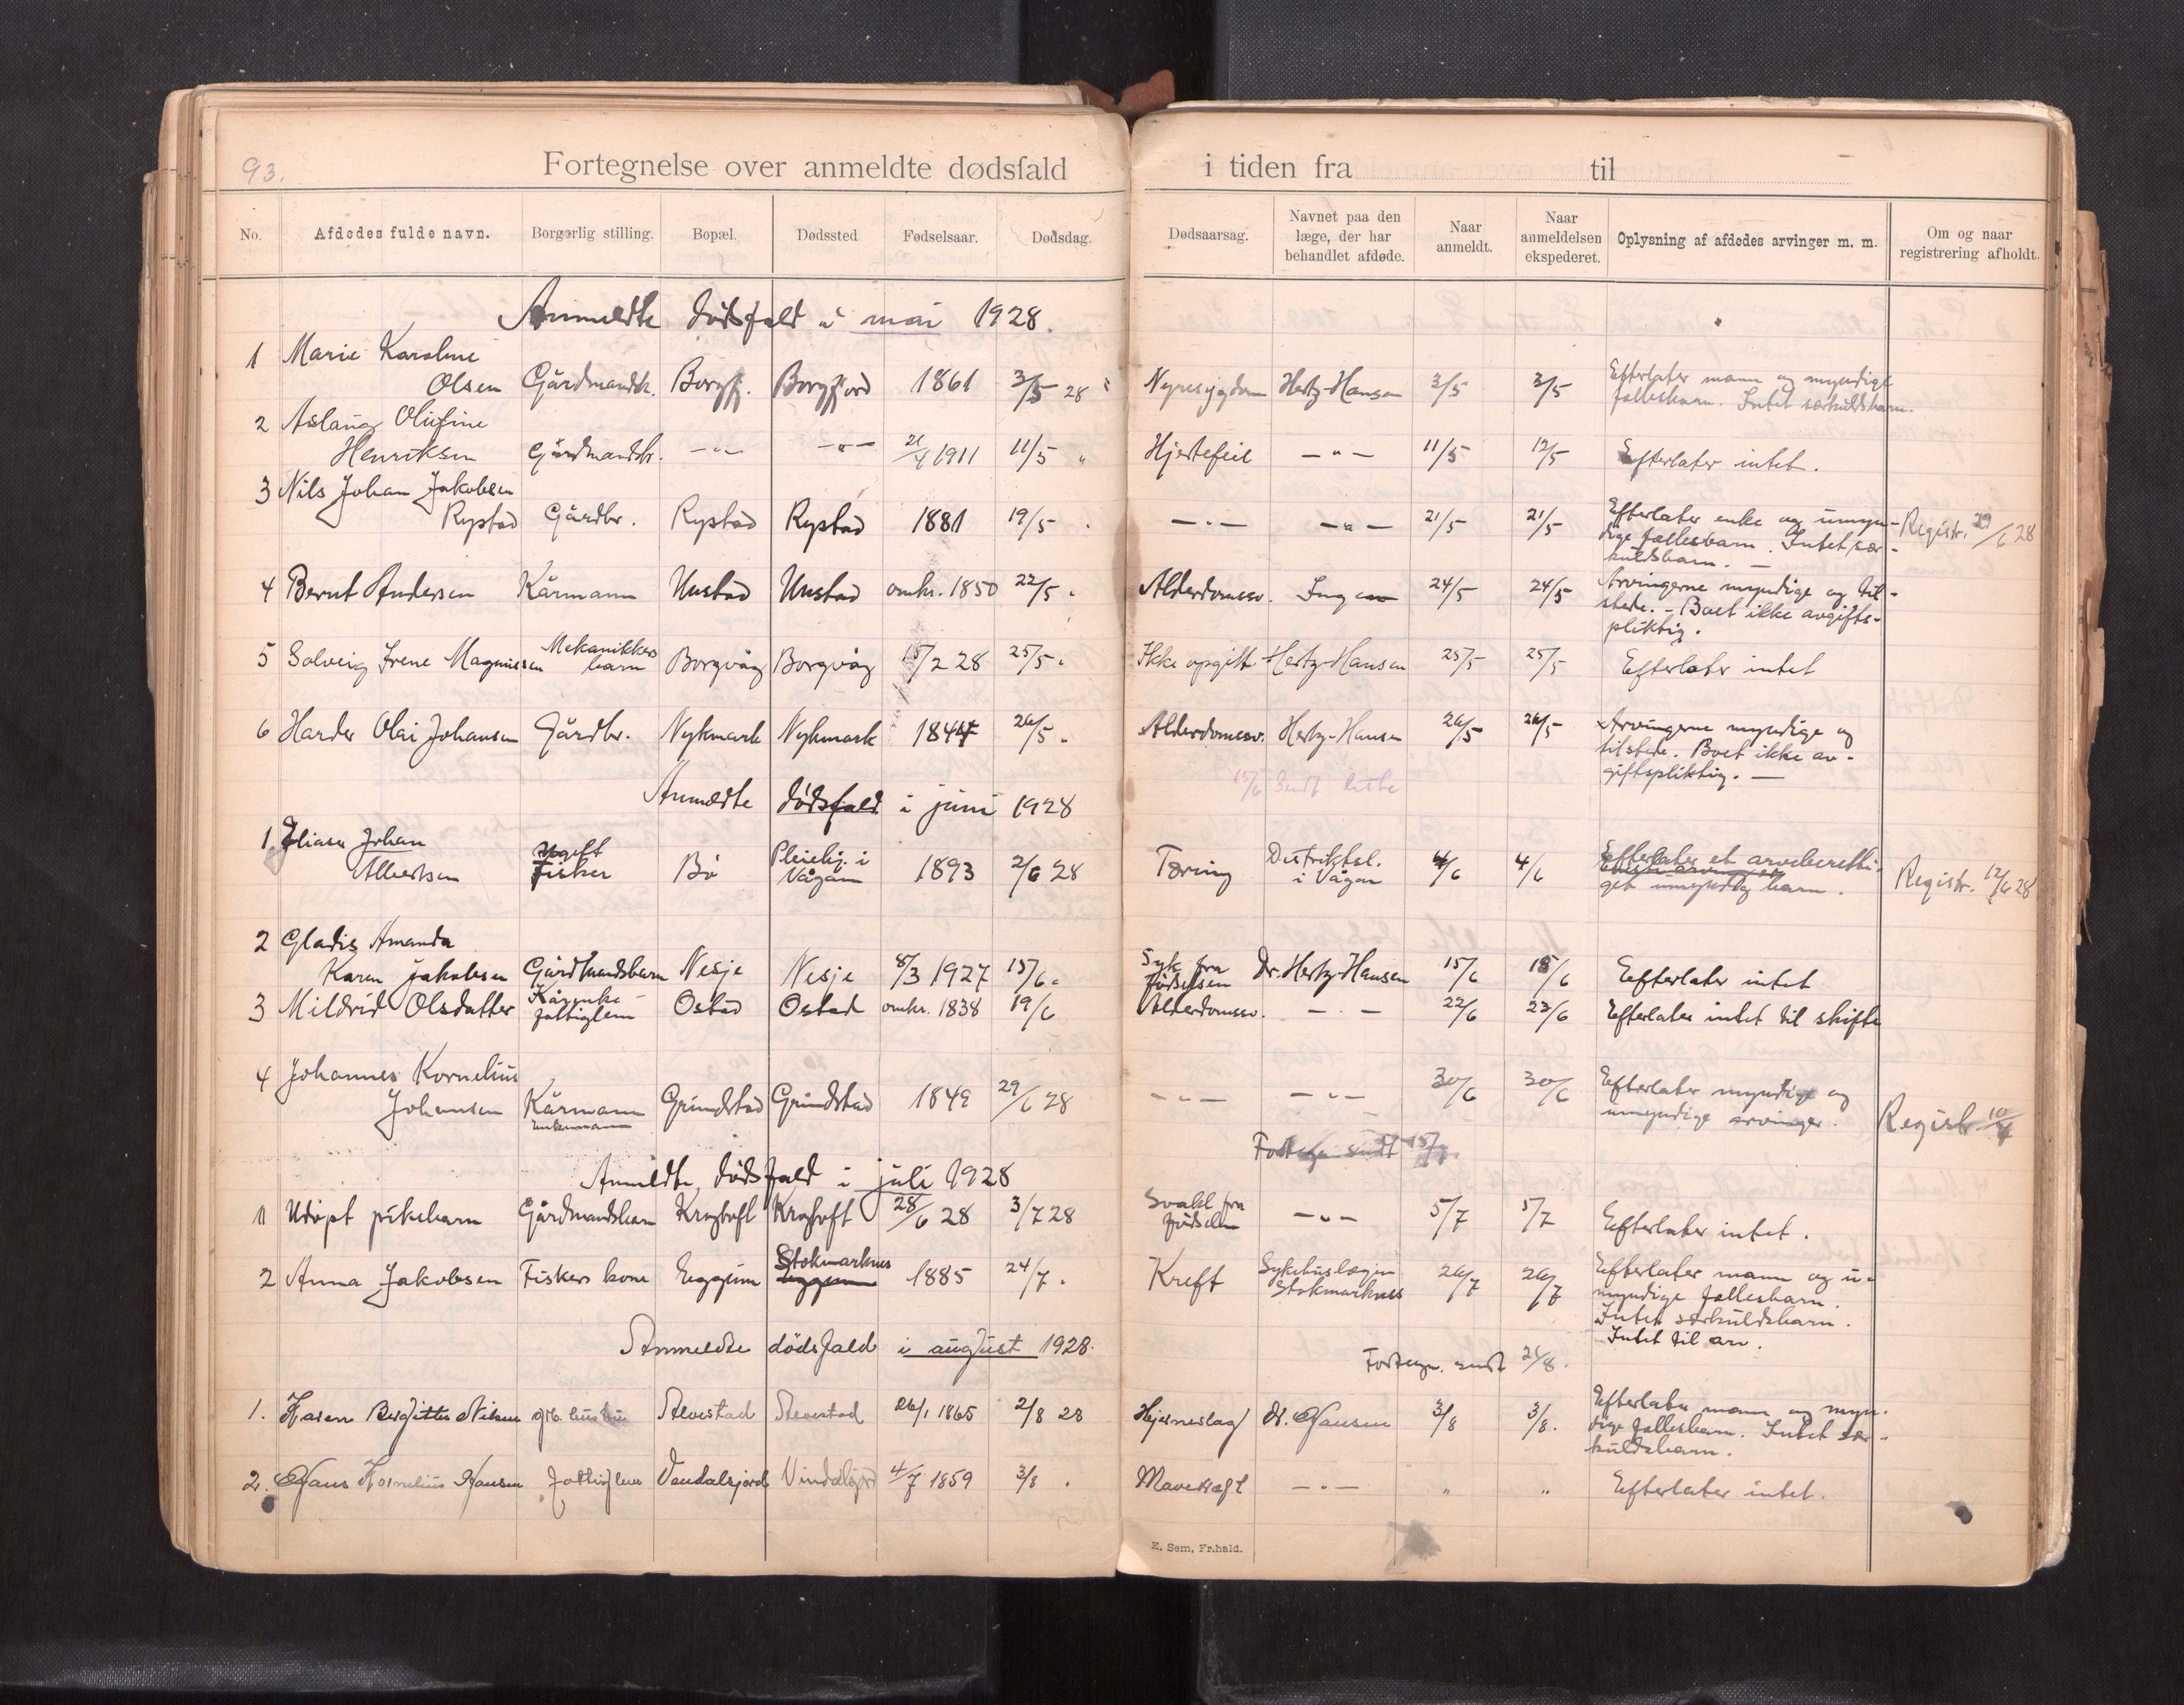 93.
Fortegnelse over anmeldte dødsfald i tiden fra til
No. Afdødes fulde navn. Borgerlig stilling. Bopæl. Dødssted. Fødselsaar. Dødsdag. Dødsaarsag. Navnet paa den læge, der har behandlet afdøde. Naar anmeldt. Naar anmeldelsen ekspederet. Oplysning af afdødes arvinger m. m. Om og naar registrering afholdt.
Anmeldte dødsfald i mai 1928.
1 Marie Karoline
Olsen Gårdmandsk. Borgfj. Borgfjord 1861 3/5 28 Nyresygdom Hertz-Hansen 3/5 3/5 Efterlater mann og myndige
fællesbarn. Intet særkuldsbarn.
2 Aslaug Olufine
Henriksen Gårdmandsb. -"- -"- 21/4 1911 11/5 " Hjertefeil -"- 11/5 12/5 Efterlater intet.
3 Nils Johan Jakobsen
Rystad Gårdbr. Rystad Rystad 1881 19/5 -"- -"- 21/5 21/5 Efterlater enke og umyn-
dige fællesbarn. Intet sær-
kuldsbarn. —
Registr. 29/6 28
4 Bernt Andersen Kårmann Unstad Unstad omkr. 1850 22/5 " Alderdomssv. Ingen 24/5 24/5 Arvingerne myndige og til-
stede. - Boet ikke avgifts-
pliktig.
5 Solveig Irene Magnussen Mekanikers
barn Borgvåg Borgvåg 15/2 28 25/5 " Ikke opgitt Hertz-Hansen 25/5 25/5 Efterlater intet
6 Harder Olai Johansen Gårdbr. Nykmark Nykmark 1844 26/5 " Alderdomssv. Hertz-Hansen 26/5 26/5 Arvingerne myndige og
tilstede. Boet ikke av-
giftspliktig. —
15/6 Sendt liste
Anmeldte dødsfald i juni 1928
1 Eliase Johan
Albertsen ugift
Fisker Bø Pleiehj. i
Vågan 1893 2/6 28 Tæring Distriktsl.
i Vågan 4/6 4/6 Efterlater et arveberetti-
get umyndig barn.
Registr. 12/6 28
2 Gladis Amanda
Karen Jakobsen Gårdmandsbarn Nesje Nesje 8/3 1927 15/6 " Syk fra
fødselsen Dr. Hertz-Hansen 15/6 15/6 Efterlater intet
3 Mildrid Olsdatter Kårenke -
fattiglem Ostad Ostad omkr. 1838 19/6 Alderdomssv. -"- 22/6 23/6 Efterlater intet til skifte
4 Johannes Kornelius
Johansen Kårmann
Enkemann Grundstad Grundstad 1849 29/6 28 -"- -"- 30/6 30/6 Efterlater myndige og
umyndige arvinger.
Registr 10/7
Fortegn sendt 15/7
Anmeldte dødsfald i juli 1928
1 Udøpt pikebarn Gårdmandsbarn Kraghoft Kraghoft 28/6 28 3/7 28 Svakt fra
fødselen -"- 5/7 5/7 Efterlater intet.
2 Anna Jakobsen Fiskers kone Eggum Stokmarknes
Eggum 1885 24/7 " Kreft Sykehuslægen
Stokmarknes 26/7 26/7 Efterlater mann og u-
myndige fællesbarn.
Intet særkuldsbarn.
Intet til arv.
Anmeldte dødsfald i august 1928.
Fortegn. sendt 21/8.
1. Karen Bergitte Nilsen grb. hustru Alvestad Alvestad 26/1 1865 2/8 28 Hjerneslag H. Hansen 3/8 3/8. Efterlater mann og myn-
dige fællesbarn. Intet sær-
kuldsbarn.
2. Hans Kornelius Hansen Fattiglem Vendalsjord Vindalsjord 4/7 1859 3/8 " Mavekræft -"- " " Efterlater intet.
E. Sem, Fr.hald.